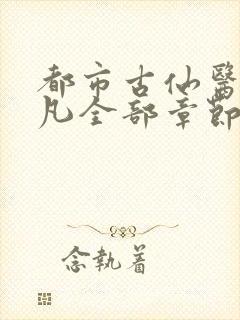 都市古仙醫
凡全部章節
念執着